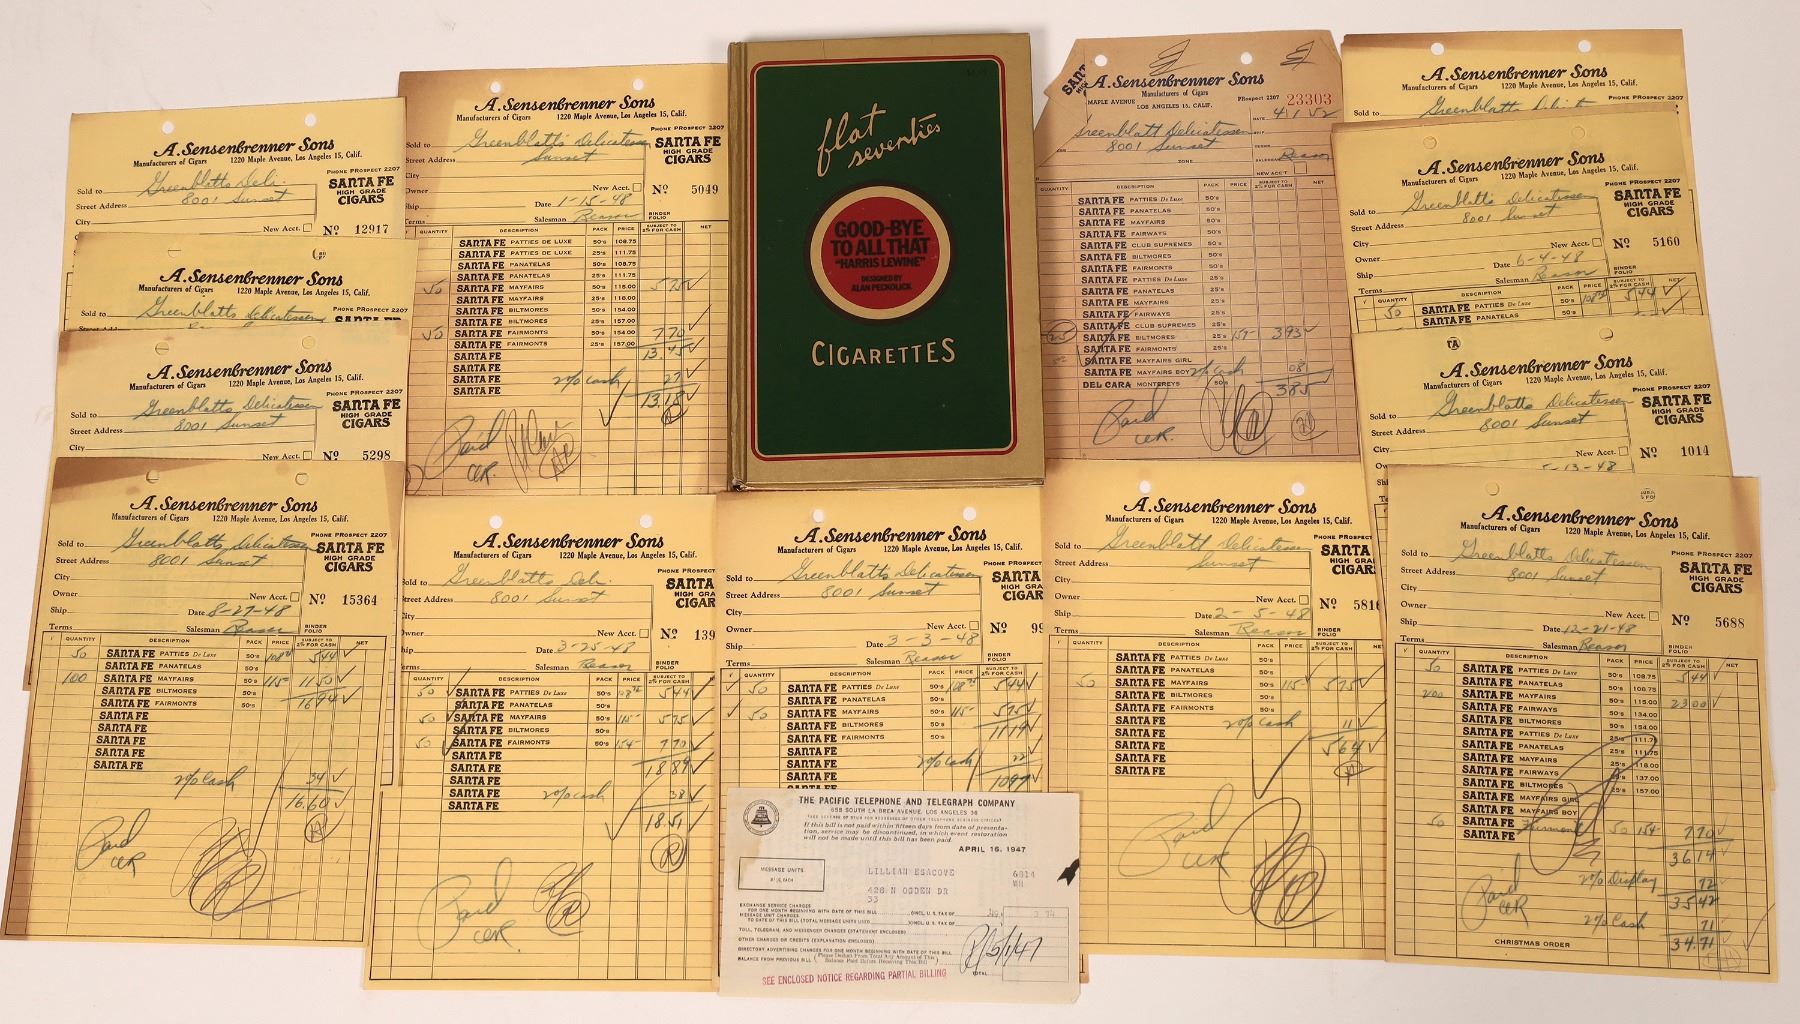 A. Sensenbrenner Sons
Manufacturers of Cigars 1220 Maple Avenue, Los Angeles 15, Calif.
PHONE PROSPECT 2207
Sold to Greenblatts Deli.
SANTA FE
HIGH GRADE
CIGARS
Street Address 8001 Sunset
City
New Acct.
Nº 12917
A. Sensenbrenner Sons
Manufacturers of Cigars 1220 Maple Avenue, Los Angeles 15, Calif.
PHONE PROSPECT 2207
Sold to Greenblatts Delicatessen
A. Sensenbrenner Sons
Manufacturers of Cigars 1220 Maple Avenue, Los Angeles 15, Calif.
PHONE PROSPECT 2207
Sold to Greenblatts Delicatessen
SANTA FE
HIGH GRADE
CIGARS
Street Address 8001 Sunset
City
New Acct.
Nº 5298
A. Sensenbrenner Sons
Manufacturers of Cigars 1220 Maple Avenue, Los Angeles 15, Calif.
PHONE PROSPECT 2207
Sold to Greenblatts Delicatessen
SANTA FE
HIGH GRADE
CIGARS
8001 Sunset
City
Owner
New Acct.
Nº 15364
Ship Date 8-27-48
Terms Salesman Reason
BINDER FOLIO
QUANTITY DESCRIPTION PACK PRICE SUBJECT TO 2% FOR CASH NET
50 SANTA FE PATTIES De Luxe 50's 544
SANTA FE PANATELAS 50's
100 SANTA FE MAYFAIRS 50's 115- 1150
SANTA FE BILTMORES 50's 1694
SANTA FE FAIRMONTS 50's
SANTA FE
SANTA FE
SANTA FE
SANTA FE
SANTA FE
2% Cash 34
16.60
Paid
A. Sensenbrenner Sons
Manufacturers of Cigars 1220 Maple Avenue, Los Angeles 15, Calif.
PHONE PROSPECT 2207
Sold to Greenblatts Delicatessen
SANTA FE
HIGH GRADE
CIGARS
Street Address Sunset
City
Owner New Acct.
Nº 5049
Ship Date 1-15-48
Terms Salesman Reason
BINDER FOLIO
QUANTITY DESCRIPTION PACK PRICE SUBJECT TO 2% FOR CASH NET
SANTA FE PATTIES DE LUXE 50's 108.75
SANTA FE PATTIES DE LUXE 25's 111.75
SANTA FE PANATELAS 50's 108.75
SANTA FE PANATELAS 25's 111.75
50 SANTA FE MAYFAIRS 50's 115.00 575
SANTA FE MAYFAIRS 25's 118.00
SANTA FE BILTMORES 50's 154.00
SANTA FE BILTMORES 25's 157.00
50 SANTA FE FAIRMONTS 50's 154.00 770
SANTA FE FAIRMONTS 25's 157.00 13.45
SANTA FE
SANTA FE
SANTA FE 2% cash 27
SANTA FE 13.18
Paid
flat
seventies
GOOD-BYE
TO ALL THAT
"HARRIS LEWINE"
DESIGNED BY
ALAN PECKOLICK
CIGARETTES
A. Sensenbrenner Sons
Manufacturers of Cigars
MAPLE AVENUE LOS ANGELES 15, CALIF. PRospect 2207
23303
DATE 4/1/52
Greenblatt Delicatessen
8001 Sunset
ZONE
SALESMAN Reason
NEW ACC'T
QUANTITY DESCRIPTION PACK PRICE SUBJECT TO 2% FOR CASH NET
SANTA FE PATTIES De Luxe 50's
SANTA FE PANATELAS 50's
SANTA FE MAYFAIRS 50's
SANTA FE FAIRWAYS 50's
SANTA FE CLUB SUPREMES 50's
SANTA FE BILTMORES 50's
SANTA FE FAIRMONTS 50's
SANTA FE PATTIES De Luxe 25's
SANTA FE PANATELAS 25's
SANTA FE MAYFAIRS 25's
SANTA FE FAIRWAYS 25's
SANTA FE CLUB SUPREMES 25's
SANTA FE BILTMORES 25's 157- 393
SANTA FE FAIRMONTS 25's
SANTA FE MAYFAIRS GIRL
SANTA FE MAYFAIRS BOY 2% Cash 08
DEL CARA MONTEREYS 50's 385
Paid
A. Sensenbrenner Sons
Manufacturers of Cigars 1220 Maple Avenue, Los Angeles 15, Calif.
PHONE PROSPECT 2207
A. Sensenbrenner Sons
Manufacturers of Cigars 1220 Maple Avenue, Los Angeles 15, Calif.
PHONE PROSPECT 2207
Sold to Greenblatts Delicatessen
SANTA FE
HIGH GRADE
CIGARS
Street Address 8001 Sunset
City
New Acct.
Nº 5160
Ship Date 6-4-48
Terms Salesman Reason
BINDER FOLIO
QUANTITY DESCRIPTION PACK PRICE SUBJECT TO 2% FOR CASH NET
50 SANTA FE PATTIES De Luxe 50's 544
SANTA FE PANATELAS 50's
A. Sensenbrenner Sons
Manufacturers of Cigars 1220 Maple Avenue, Los Angeles 15, Calif.
PHONE PROSPECT 2207
Sold to Greenblatts Delicatessen
SANTA FE
HIGH GRADE
CIGARS
Street Address 8001 Sunset
City
New Acct.
Nº 1014
5-13-48
A. Sensenbrenner Sons
Manufacturers of Cigars 1220 Maple Avenue, Los Angeles 15, Calif.
PHONE PROSPECT
Sold to Greenblatts Deli.
SANTA
HIGH GRA
CIGAR
Street Address 8001 Sunset
City
Owner New Acct.
Nº 139
Ship Date 3-25-48
Terms Salesman Reason
QUANTITY DESCRIPTION PACK PRICE
50 SANTA FE PATTIES De Luxe 50's 544
SANTA FE PANATELAS 50's
50 SANTA FE MAYFAIRS 50's 115- 575
SANTA FE BILTMORES 50's
50 SANTA FE FAIRMONTS 50's 154- 770
SANTA FE 18.89
SANTA FE
SANTA FE
SANTA FE 2% cash 38
SANTA FE
18.51
Paid
A. Sensenbrenner Sons
Manufacturers of Cigars 1220 Maple Avenue, Los Angeles 15, Calif.
PHONE PROSPECT
Sold to Greenblatts Delicatessen
Street Address 8001 Sunset
City
Owner New Acct.
Nº 99
Ship Date 3-3-48
Terms Salesman Reason
QUANTITY DESCRIPTION PACK PRICE
50 SANTA FE PATTIES De Luxe 50's 544
SANTA FE PANATELAS 50's
50 SANTA FE MAYFAIRS 50's 115- 575
SANTA FE BILTMORES 50's 1119
SANTA FE FAIRMONTS 50's
SANTA FE
SANTA FE 2% Cash 22
SANTA FE 1097
THE PACIFIC TELEPHONE AND TELEGRAPH COMPANY
658 SOUTH LA BREA AVENUE, LOS ANGELES 36
If this bill is not paid within fifteen days from date of presenta-
tion, service may be discontinued, in which event restoration
will not be made until this bill has been paid.
APRIL 16, 1947
MESSAGE UNITS
LILLIAN ESACOVE
6814
WH
426 N OGDEN DR
33
EXCHANGE SERVICE CHARGES
FOR ONE MONTH BEGINNING WITH DATE OF THIS BILL (INCL. U.S. TAX OF
MESSAGE UNIT CHARGES
TO DATE OF THIS BILL (TOTAL MESSAGE UNITS USED (INCL. U.S. TAX OF
TOLL, TELEGRAM, AND MESSENGER CHARGES (STATEMENT ENCLOSED)
OTHER CHARGES OR CREDITS (EXPLANATION ENCLOSED)
DIRECTORY ADVERTISING CHARGES FOR ONE MONTH BEGINNING WITH DATE OF THIS BILL
BALANCE FROM PREVIOUS BILL (Please Deduct From Total Any Amount of This Balance Paid Before Receiving This Bill)
TOTAL
SEE ENCLOSED NOTICE REGARDING PARTIAL BILLING
A. Sensenbrenner Sons
Manufacturers of Cigars 1220 Maple Avenue, Los Angeles 15, Calif.
PHONE PROSPECT
Sold to Greenblatt Delicatessen
Sunset
City
Owner New Acct.
Nº 5816
Ship Date 2-5-48
Terms Salesman Reason
BINDER FOLIO
QUANTITY DESCRIPTION PACK PRICE SUBJECT TO 2% FOR CASH
SANTA FE PATTIES De Luxe 50's
SANTA FE PANATELAS 50's
50 SANTA FE MAYFAIRS 50's 115 575
SANTA FE BILTMORES 50's
SANTA FE FAIRMONTS 50's
SANTA FE 2% Cash 11
SANTA FE
SANTA FE 564
SANTA FE
SANTA FE
Paid
A. Sensenbrenner Sons
Manufacturers of Cigars 1220 Maple Avenue, Los Angeles 15, Calif.
PHONE PROSPECT 2207
Sold to Greenblatts Delicatessen
SANTA FE
HIGH GRADE
CIGARS
Street Address 8001 Sunset
City
Owner New Acct.
Nº 5688
Ship Date 12-21-48
Terms Salesman Reason
BINDER FOLIO
QUANTITY DESCRIPTION PACK PRICE SUBJECT TO 2% FOR CASH NET
50 SANTA FE PATTIES De Luxe 50's 108.75 544
SANTA FE PANATELAS 50's 108.75
200 SANTA FE MAYFAIRS 50's 115.00 2300
SANTA FE FAIRWAYS 50's 134.00
SANTA FE BILTMORES 50's 154.00
SANTA FE PATTIES De Luxe 25's 111.75
SANTA FE PANATELAS 25's 111.75
SANTA FE MAYFAIRS 25's 118.00
SANTA FE FAIRWAYS 25's 137.00
SANTA FE BILTMORES 25's 157.00
SANTA FE MAYFAIRS GIRL
SANTA FE MAYFAIRS BOY
50 SANTA FE Fairmont 50 154- 770
3614
2% Display 72
3542
Paid
2% Cash 71
CHRISTMAS ORDER 34.71